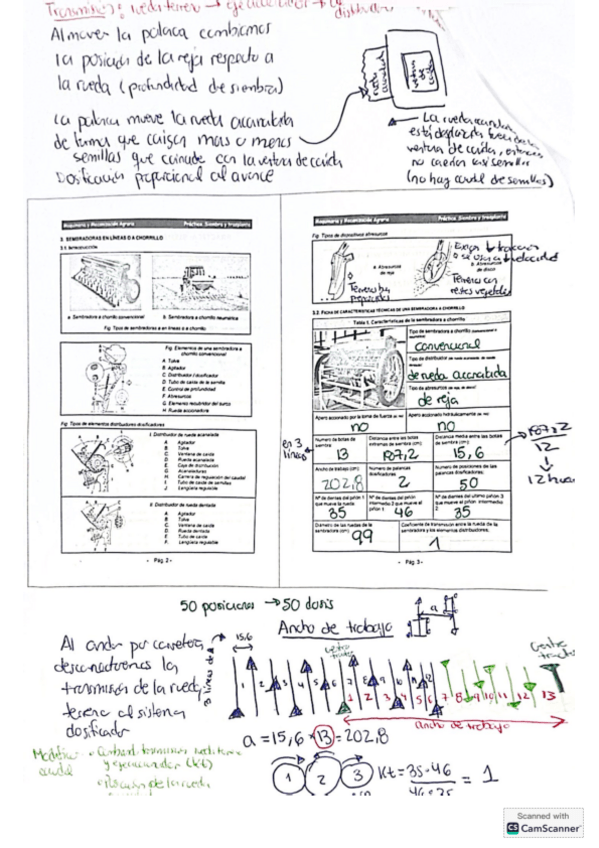 Transmisión: rueda terreno → eje
Al mover la palanca cambiamos
la posición de la reja respecto a
la rueda (profundidad de siembra)
La palanca mueve la rueda acanalada
de forma que caigan mas o menos
semillas que coincide con la ventana de caída
Dosificación proporcional al avance
La rueda acanalada
está desplazada
ventana de caída, entonces
no caerían semillas
(no hay caudal de semillas)
Maquinaria y Mecanización Agraria Práctica. Siembra y trasplante
3. SEMBRADORAS EN LÍNEAS O A CHORRILLO
3.1. Introducción
a. Sembradora a chorrillo convencional
b. Sembradora a chorrillo neumática
Fig: Tipos de sembradoras a en líneas o a chorrillo
Fig. Elementos de una sembradora a
chorrillo convencional
A Tolva
B. Agitador
C. Distribuidor / dosificador
D. Tubo de caída de la semilla
E. Control de profundidad
F. Abresurcos
G. Elemento recubridor del surco
H. Rueda accionadora
Fig: Tipos de elementos distribuidores dosificadores
I. Distribuidor de rueda acanalada
A. Agitador
B. Tolva
C. Ventana de caída
D. Rueda acanalada
E. Caja de distribución
G. Acanaladuras
H. Carrera de regulación del caudal
I. Tubo de caída de semillas
J. Lengüeta regulable
II. Distribuidor de rueda dentada
A. Agitador
B. Tolva
C. Ventana de caída
D. Rueda dentada
E. Tubo de caída
F. Lengüeta regulable
- Pág. 2 -
Maquinaria y Mecanización Agraria Práctica. Siembra y trasplante
Fig: Tipos de dispositivos abresurcos
a. Abresurcos
de reja
b. Abresurcos
de disco
Exige ↓ tracción
o se usa a ↑ velocidad
Terreno bien
preparados
Terreno con
restos vegetales
3.2. FICHA DE CARACTERÍSTICAS TÉCNICAS DE UNA SEMBRADORA A CHORRILLO
Tabla 1. Características de la sembradora a chorrillo
Tipo de sembradora a chorrillo
convencional
Tipo de distribuidor
de rueda acanalada
Tipo de abresurcos
de reja
Apero accionado por la toma de fuerza
no
Apero accionado hidráulicamente
no
en 3
líneas
Número de botas de
siembra
13
Distancia entre las botas
extremas de siembra (cm)
187,2
Distancia media entre las botas
de siembra (cm)
15,6
187,2
12
12 huecos
Ancho de trabajo (cm)
202,8
Número de palancas
dosificadoras
2
Número de posiciones de las
palancas dosificadoras
50
Nº de dientes del piñón 1
que mueve la rueda
35
Nº de dientes del piñón
intermedio 2 que mueve el
piñón 1
46
Nº de dientes del último piñón 3
que mueve al piñón intermedio
2
35
Diámetro de las ruedas de la
sembradora (cm)
99
Coeficiente de transmisión entre la rueda de la
sembradora y los elementos distribuidores
1
- Pág. 3 -
50 posiciones → 50 dosis
Ancho de trabajo
a
Al andar por carretera
desconectaremos la
transmisión de la rueda
terreno al sistema
dosificador
15,6
3 líneas de
1 2 3 4 5 6 7 8 9 10 11 12
1 2 3 4 5 6 7 8 9 10 11 12 13
ancho de trabajo
a = 15,6 × 13 = 202,8
Modificar
caudal
y eje accionador (kt)
1 2 3
Kt = 35·46 = 1
46·35
Scanned with
CS CamScanner